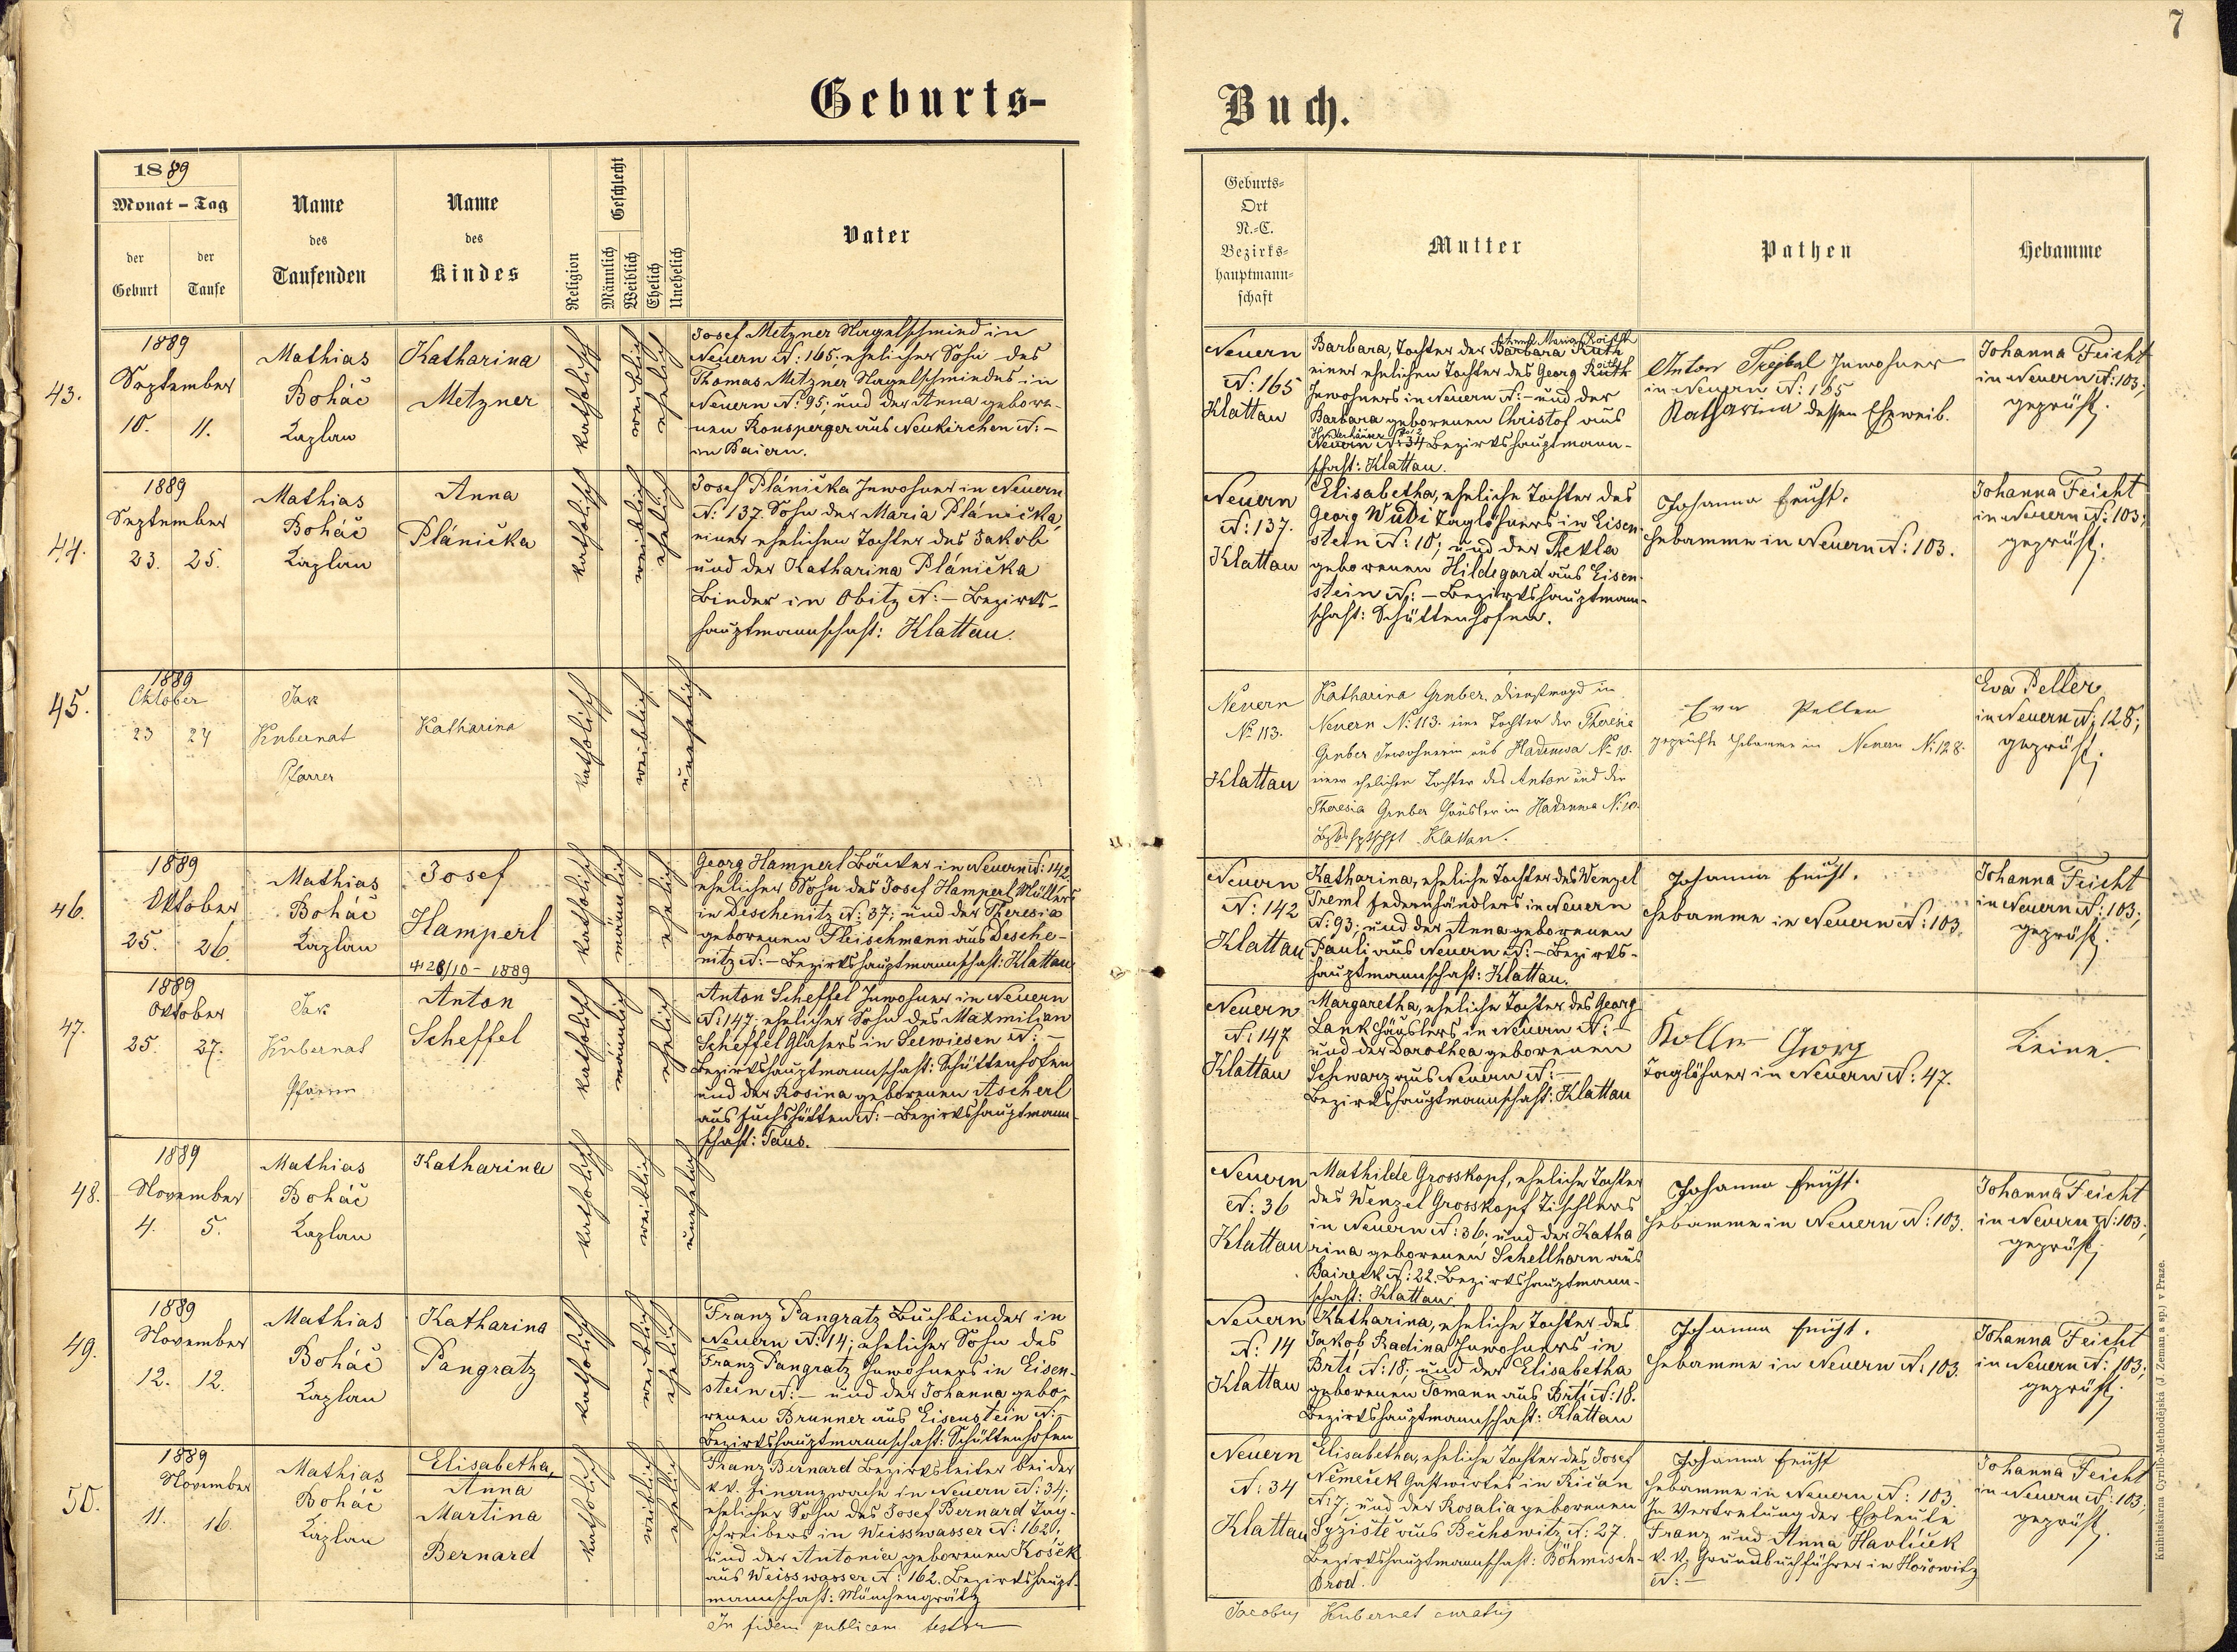 7
Geburts-
Buch.
1889
Monat - Tag
der Geburt
der Taufe
Name des Taufenden
Name des Kindes
Religion
Geschlecht
Männlich
Weiblich
Ehelich
Unehelich
Vater
Geburts-
Ort
N.-C.
Bezirks-
hauptmann-
schaft
Mutter
Pathen
Hebamme
43.
1889
September
10. 11.
Mathias
Boháč
Kaplan
Katharina
Metzner
katholisch
weiblich
ehelich
Josef Metzner Nagelschmied in
Neuern N: 165; ehelicher Sohn des
Thomas Metzner Nagelschmiedes in
Neuern N: 95; und der Anna gebore-
nen Ronsperger aus Neukirchen N: –
in Baiern.
Neuern
N: 165
Klattau
Barbara, Tochter der Barbara Ruth
einer ehelichen Tochter des Georg Ruth
Inwohners in Neuern N: – und der
Barbara geborenen Christof aus
Neuern N: 34 Bezirkshauptmann-
schaft: Klattau.
Anton Trejbal Inwohner
in Neuern N: 165
Katharina dessen Eheweib.
Johanna Feicht
in Neuern N: 103;
geprüft.
44.
1889
September
23. 25.
Mathias
Boháč
Kaplan
Anna
Plánička
katholisch
weiblich
ehelich
Josef Plánička Inwohner in Neuern
N: 137. Sohn der Maria Plánička,
einer ehelichen Tochter des Jakob
und der Katharina Plánička
Binder in Obitz N: – Bezirks-
hauptmannschaft: Klattau.
Neuern
N: 137.
Klattau
Elisabetha, eheliche Tochter des
Georg Wudi Taglöhners in Eisen-
stein N: 10; und der Thekla
geborenen Hildegard aus Eisen-
stein N: – Bezirkshauptmann-
schaft: Schüttenhofen.
Johanna Feicht.
Hebamme in Neuern N: 103.
Johanna Feicht
in Neuern N: 103;
geprüft.
45.
1889
Oktober
23 24
Jak
Kubernat
Pfarrer
Katharina
katholisch
weiblich
unehelich
Neuern
No 113.
Klattau
Katharina Gruber, Dienstmagd in
Neuern N: 113. eine Tochter der Theresia
Gruber Inwohnerin aus Hadruwa No 10.
einer ehelichen Tochter des Anton und der
Theresia Gruber Häusler in Hadruwa N: 10.
Klattau.
Eva Peller
geprüfte Hebamme in Neuern N: 128.
Eva Peller
in Neuern N: 128;
geprüft.
46.
1889
Oktober
25. 26.
Mathias
Boháč
Kaplan
Josef
Hamperl
+ 28/10 - 1889
katholisch
männlich
ehelich
Georg Hamperl Bäcker in Neuern N: 142
ehelicher Sohn des Josef Hamperl Müllers
in Deschenitz N: 37; und der Theresia
geborenen Fleischmann aus Desche-
nitz N: – Bezirkshauptmannschaft: Klattau
Neuern
N: 142
Klattau
Katharina, eheliche Tochter des Wenzel
Treml Federnhändlers in Neuern
N: 93; und der Anna geborenen
Pauli aus Neuern N: – Bezirks-
hauptmannschaft: Klattau.
Johanna Feicht.
Hebamme in Neuern N: 103.
Johanna Feicht
in Neuern N: 103;
geprüft.
47.
1889
Oktober
25. 27.
Jak
Kubernat
Pfarrer
Anton
Scheffel
katholisch
männlich
ehelich
Anton Scheffel Inwohner in Neuern
N: 147; ehelicher Sohn des Maxmilian
Scheffel Glasers in Seewiesen N: –
Bezirkshauptmannschaft: Schüttenhofen
und der Rosina geborenen Ascherl
aus Fuchshütten N: – Bezirkshauptmann-
schaft: Taus.
Neuern
N: 147
Klattau
Margaretha, eheliche Tochter des Georg
Lank Häuslers in Neuern N: –
und der Dorothea geborenen
Schwarz aus Neuern N: –
Bezirkshauptmannschaft: Klattau
Koller Georg
Taglöhner in Neuern N: 47.
Keine.
48.
1889
November
4. 5.
Mathias
Boháč
Kaplan
Katharina
katholisch
weiblich
unehelich
Neuern
N: 36
Klattau
Mathilde Grosskopf, eheliche Tochter
des Wenzel Grosskopf Tischlers
in Neuern N: 36; und der Katha
rina geborenen Schellhorn aus
Baireck N: 22. Bezirkshauptmann-
schaft: Klattau.
Johanna Feicht.
Hebamme in Neuern N: 103.
Johanna Feicht
in Neuern N: 103;
geprüft.
49.
1889
November
12. 12.
Mathias
Boháč
Kaplan
Katharina
Pangratz
katholisch
weiblich
ehelich
Franz Pangratz Buchbinder in
Neuern N: 14; ehelicher Sohn des
Franz Pangratz Inwohners in Eisen-
stein N: – und der Johanna gebo-
renen Brunner aus Eisenstein N: –
Bezirkshauptmannschaft: Schüttenhofen
Neuern
N: 14
Klattau
Katharina, eheliche Tochter des
Jakob Radina Inwohners in
Brti N: 18; und der Elisabetha
geborenen Tomann aus Brti N: 18.
Bezirkshauptmannschaft: Klattau
Johanna Feicht.
Hebamme in Neuern N: 103.
Johanna Feicht
in Neuern N: 103;
geprüft.
50.
1889
November
11. 16.
Mathias
Boháč
Kaplan
Elisabetha,
Anna
Martina
Bernard
katholisch
weiblich
ehelich
Franz Bernard Bezirksleiter bei der
k.k. Finanzwache in Neuern N: 34;
ehelicher Sohn des Josef Bernard Tag-
schreibers in Weisswasser N: 162;
und der Antonia geborenen Košek
aus Weisswasser N: 162. Bezirkshaupt-
mannschaft: Münchengrätz
Neuern
N: 34
Klattau
Elisabetha, eheliche Tochter des Josef
Němeček Gastwirtes in Řičan
N: 7; und der Rosalia geborenen
Syziště aus Bechowitz N: 27.
Bezirkshauptmannschaft: Böhmisch-
Brod.
Johanna Feicht
Hebamme in Neuern N: 103.
In Vertretung der Eheleute
Franz und Anna Havliček
k. k. Grundbuchführer in Hořowitz
N: –
Johanna Feicht
in Neuern N: 103;
geprüft.
In fidem publicam testor
Jacobus Kubernat curatus
Knihtiskárna Cyrillo-Methodějská (J. Zeman a sp.) v Praze.